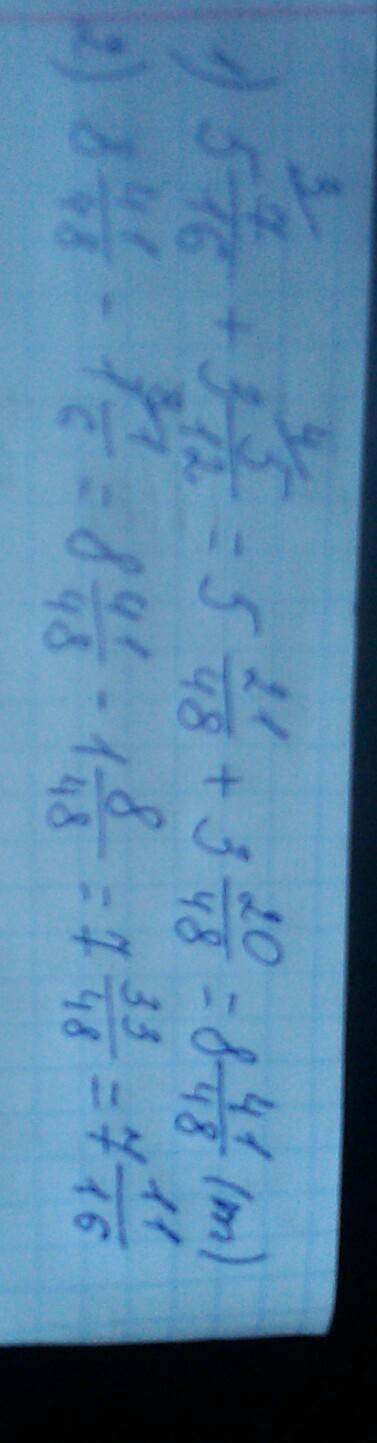 1) 5 7/16 (3) + 3 5/12 (4) = 5 21/48 + 3 20/48 = 8 41/48 (m)
2) 8 41/48 - 1 1/6 (8) = 8 41/48 - 1 8/48 = 7 33/48 = 7 11/16